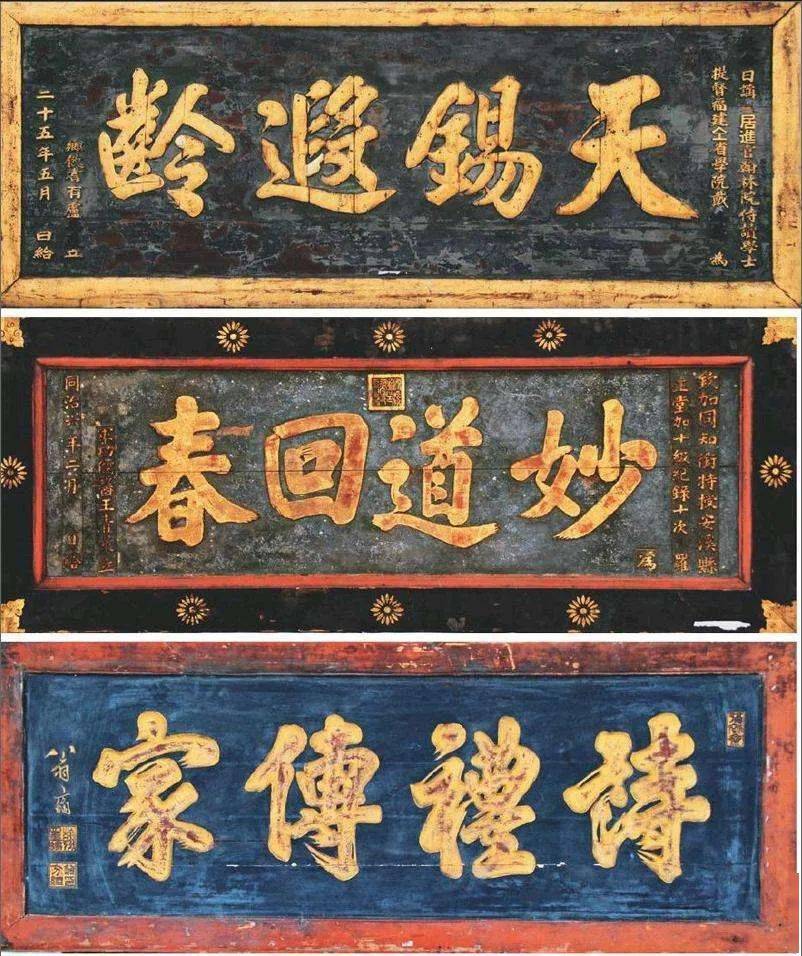 日講起居進官翰林院侍讀學士
提督福建全省學院戴 為
天錫遐齡
立
二十五年五月 日給
欽加同知銜特授安溪縣
正堂加十級紀錄十次 羅
為
妙道回春
立
同治 年二月 日給
詩禮傳家